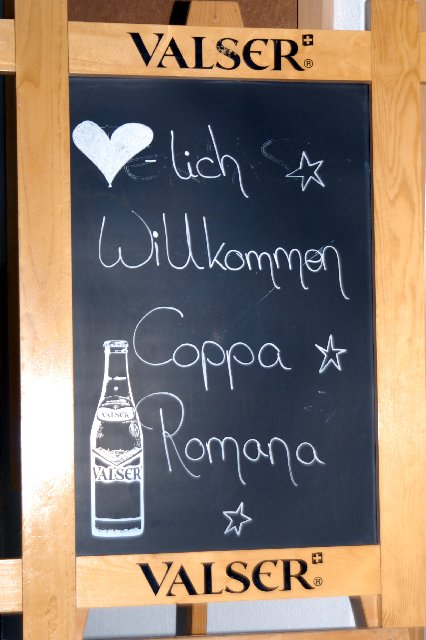 VALSER®
♥-lich
Willkommen
Coppa
Romana
VALSER
VALSER
VALSER®